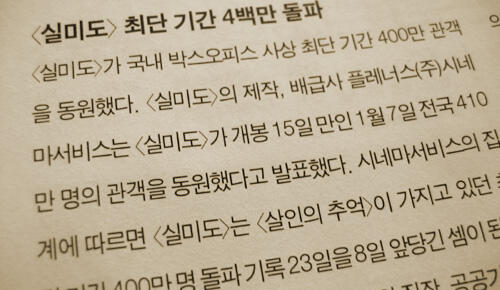 〈실미도〉 최단 기간 4백만 돌파
〈실미도〉가 국내 박스오피스 사상 최단 기간 400만 관객
을 동원했다. 〈실미도〉의 제작, 배급사 플레너스(주)시네
마서비스는 〈실미도〉가 개봉 15일 만인 1월 7일 전국 410
만 명의 관객을 동원했다고 발표했다. 시네마서비스의 집
계에 따르면 〈실미도〉는 〈살인의 추억〉이 가지고 있던
기간 400만 명 돌파 기록 23일을 8일 앞당긴 셈이